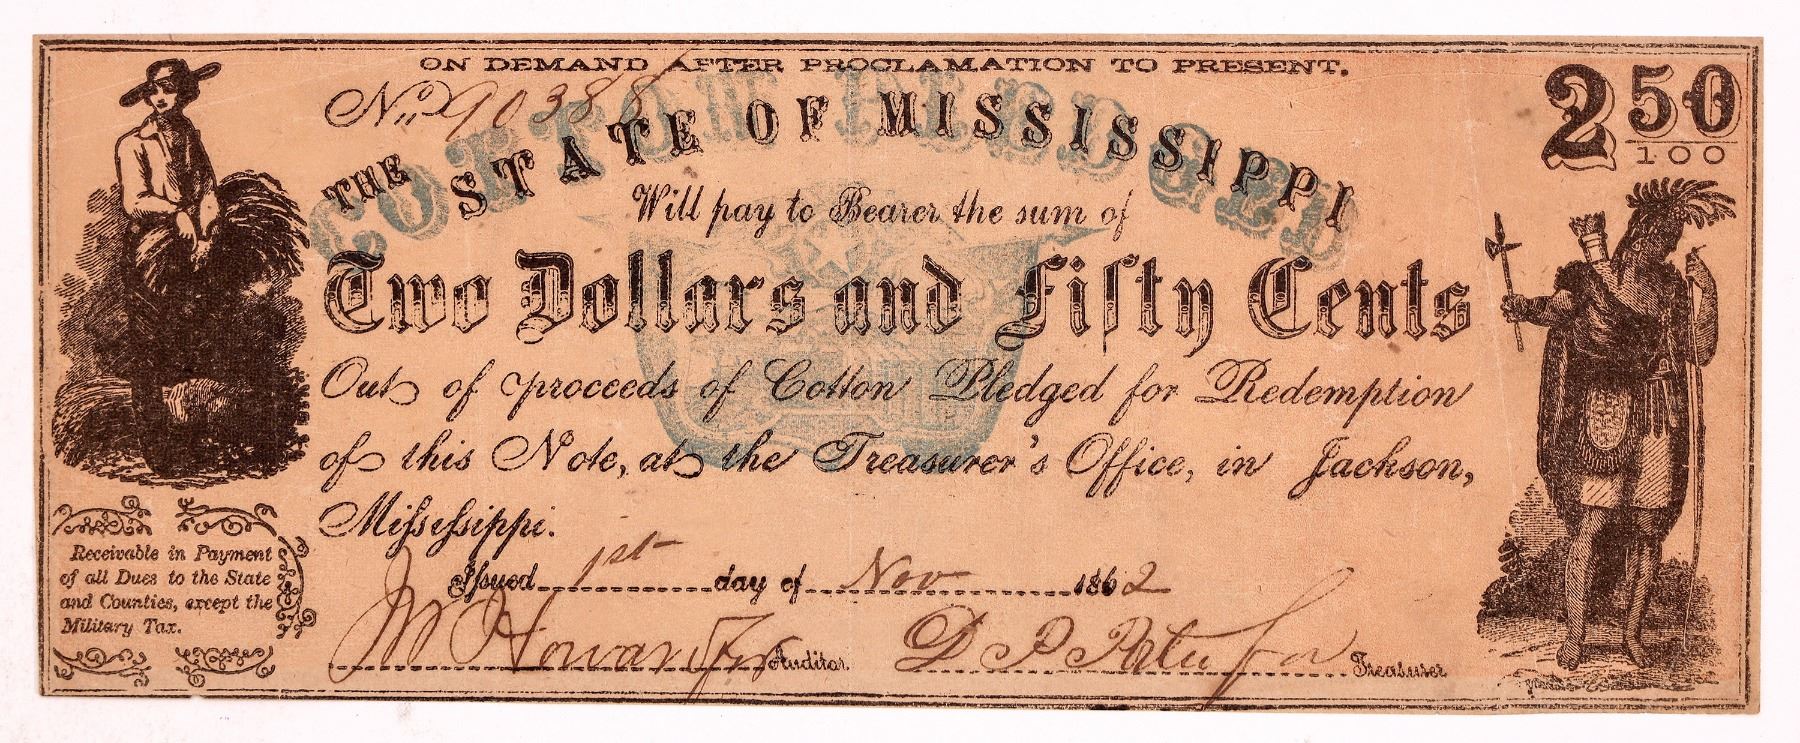 ON DEMAND AFTER PROCLAMATION TO PRESENT.
No. 90388
2 50/100
COTTON PLEDGED
THE STATE OF MISSISSIPPI
Will pay to Bearer the sum of
Two Dollars and Fifty Cents
Out of proceeds of Cotton Pledged for Redemption
of this Note, at the Treasurer's Office, in Jackson,
Mississippi.
Issued 1st day of Nov 1862
Receivable in Payment
of all Dues to the State
and Counties, except the
Military Tax.
Howard for Auditor
D P Porter for Treasurer